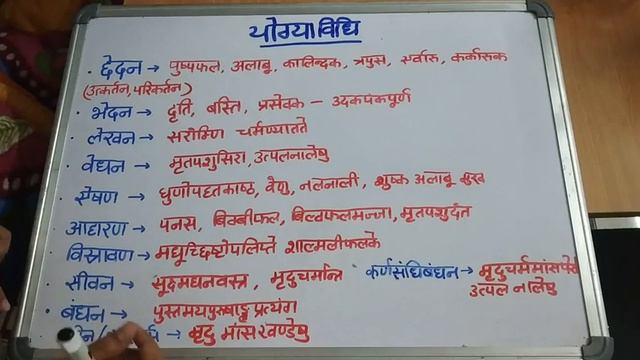 योग्याविधि
• छेदन → पुष्पफल, अलाबू, कालिन्दक, त्रपुस, एर्वारु, कर्कारुक
(उत्कर्तन, परिकर्तन)
• भेदन → दृति, बस्ति, प्रसेवक – उदकपकपूर्ण
• लेखन → सरोम्णि चर्मण्यातते
• वेधन → मृतपशुसिरा, उत्पलनालेषु
• एषण → घुणोपहतकाष्ठ, वेणु, नलनाली, शुष्क अलाबू मुख
• आहारण → पनस, बिम्बीफल, बिल्वफलमज्जा, मृतपशुदंत
विस्रावण → मधूच्छिष्टोपलिप्ते शाल्मलीफलके
• सीवन → सूक्ष्मघनवस्त्र, मृदुचर्मान्त कर्णसंधिबंधन → मृदुचर्ममांसपेशी
उत्पल नालेषु
• बंधन → पुस्तमयपुरुषाङ्ग प्रत्यंग
→ मृदु मांसखण्डेषु